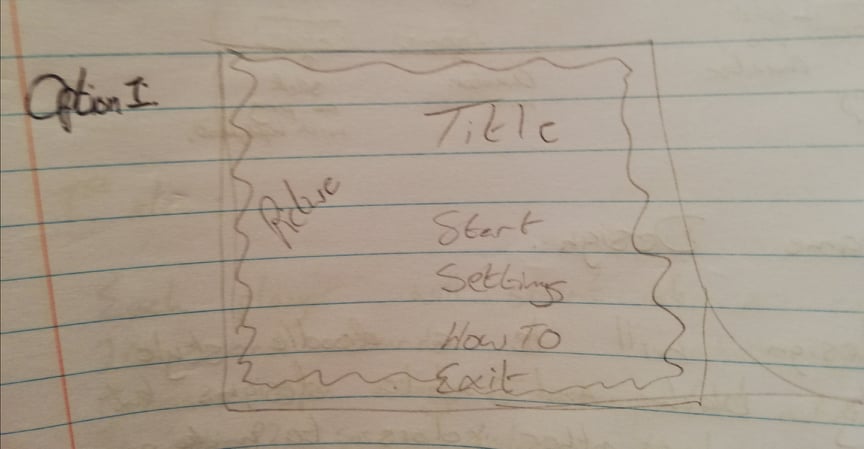 Option I.
Title
Picture
Start
Settings
How To
Exit